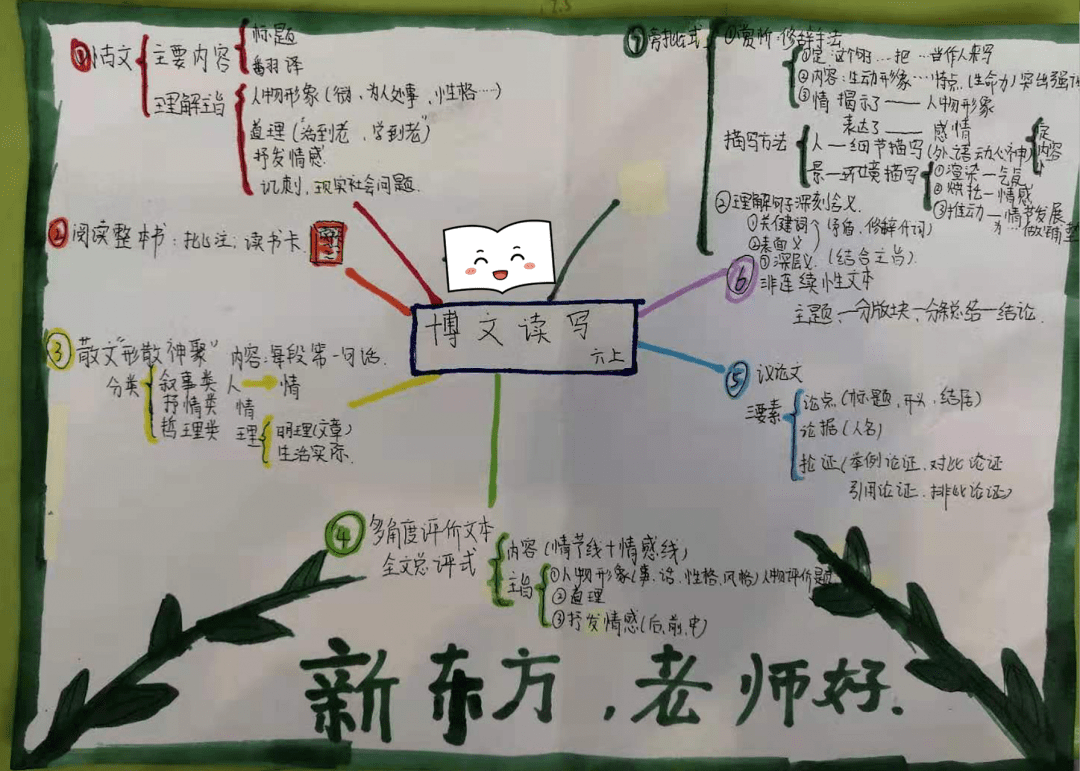 博文读写
六上
① 古文
主要内容
标题
翻译
理解主旨
人物形象（德、为人处事、性格…）
道理（"活到老，学到老"）
抒发情感
讽刺、现实社会问题.
② 阅读整本书：批注；读书卡
③ 散文"形散神聚" 内容：每段第一句话.
分类
叙事类 人 → 情
抒情类 情
哲理类 理
明理（文章）
生活实际.
④ 多角度评价文本
全文总评式
内容（情节线＋情感线）
主旨
①人物形象（事、语、性格、风格）人物评价题
②道理
③抒发情感（后、前、中）
⑤ 议论文
三要素
论点（标题、开头、结尾）
论据（人名）
论证（举例论证、对比论证
引用论证、排比论证）
⑥ 非连续性文本
主题、一分版块、一分条总结一结论.
⑦ 旁批式
①赏析·修辞手法
①定 这个明…把…当作人来写
②内容：生动形象…特点，（生命力）突出强调
③情 揭示了——人物形象
表达了——感情
描写方法
人—细节描写（外、语、动、心、神）
定
内容
景—环境描写
①渲染—气氛
②烘托—情感
③推动—情节发展
为…做铺垫
②理解句子深刻含义.
①关键词
②表面义
③深层义.（结合主旨）.
新东方，老师好.